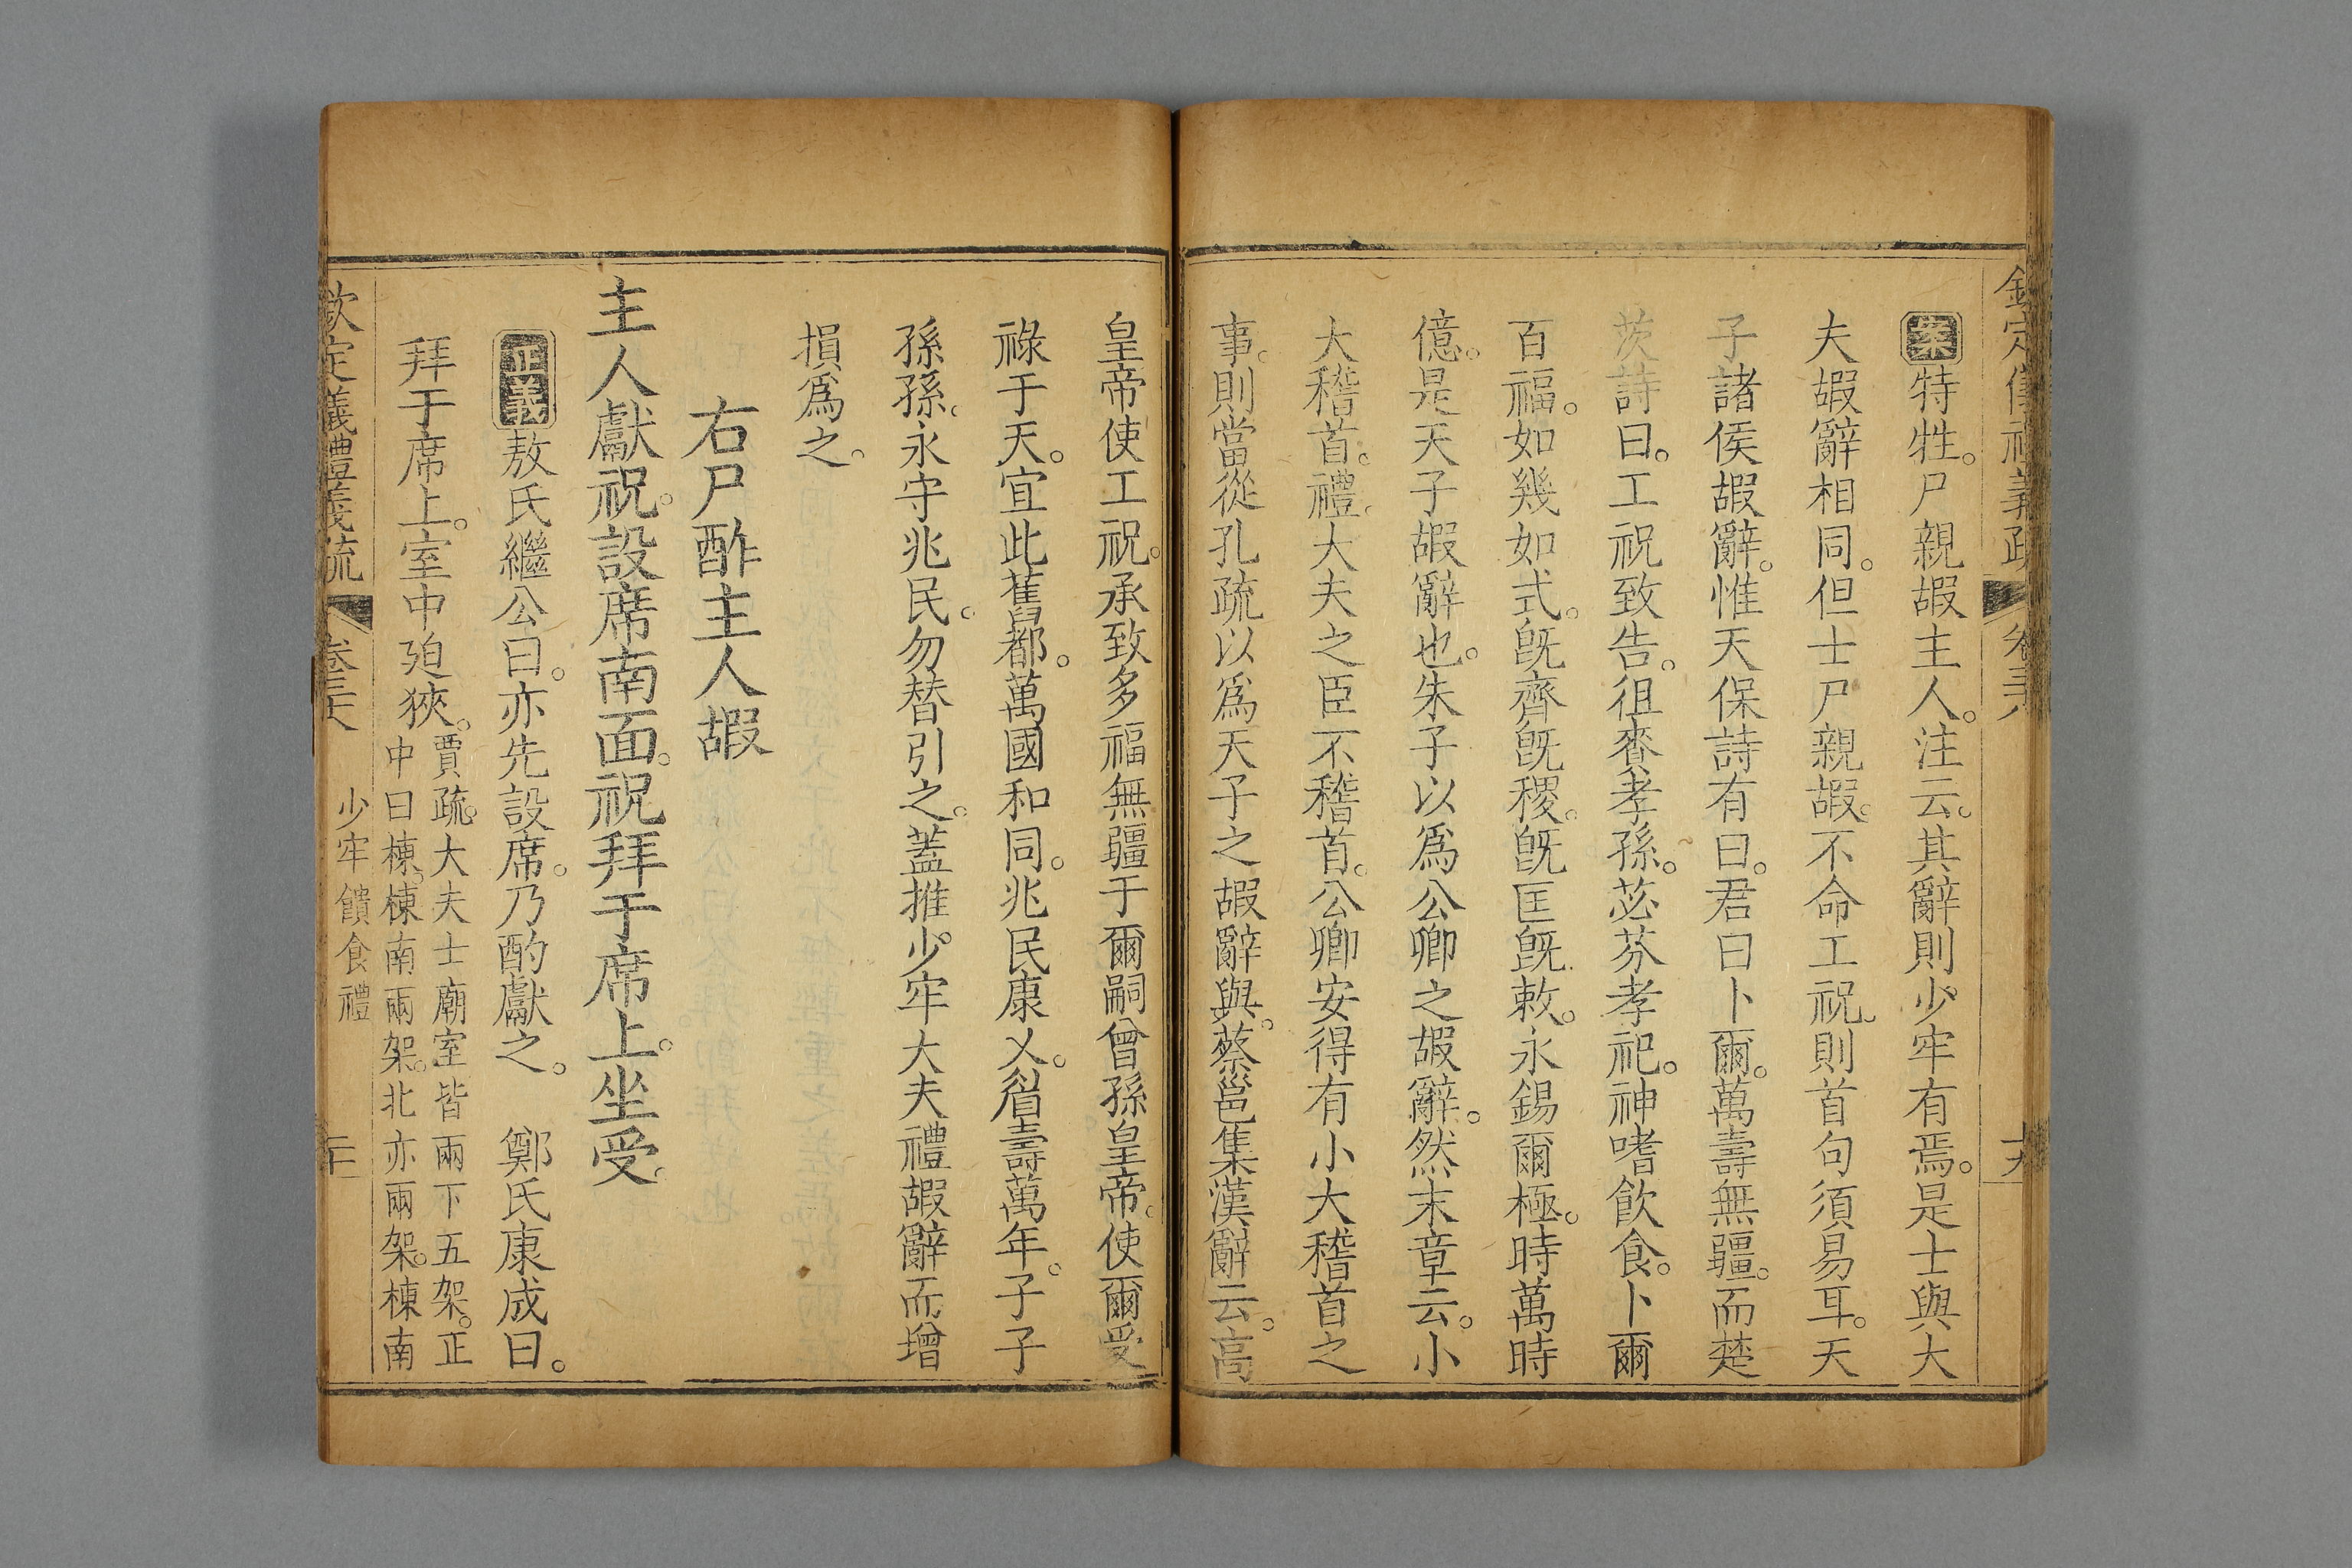 欽定儀禮義疏 卷三十八 十九
案特牲。尸親嘏主人。注云。其辭則少牢有焉。是士與大
夫嘏辭相同。但士尸親嘏。不命工祝。則首句須易耳。天
子諸侯嘏辭。惟天保詩有曰。君曰卜爾。萬壽無疆。而楚
茨詩曰。工祝致告。徂賚孝孫。苾芬孝祀。神嗜飲食。卜爾
百福。如幾如式。旣齊旣稷。旣匡旣敕。永錫爾極。時萬時
億。是天子嘏辭也。朱子以爲公卿之嘏辭。然末章云。小
大稽首。禮。大夫之臣不稽首。公卿安得有小大稽首之
事。則當從孔疏以爲天子之嘏辭與。蔡邕集漢辭云。高
皇帝使工祝。承致多福無疆于爾嗣曾孫皇帝。使爾受
祿于天。宜此舊都。萬國和同。兆民康乂。眉壽萬年。子子
孫孫。永守兆民。勿替引之。蓋推少牢大夫禮嘏辭而增
損爲之。
右尸酢主人嘏
主人獻祝。設席南面。祝拜于席上。坐受。
正義敖氏繼公曰。亦先設席。乃酌獻之。 鄭氏康成曰。
拜于席上。室中廹狹。賈疏。大夫士廟室皆兩下五架。正
中曰棟。棟南兩架。北亦兩架。棟南
欽定儀禮義疏 卷三十八 少牢饋食禮 二十